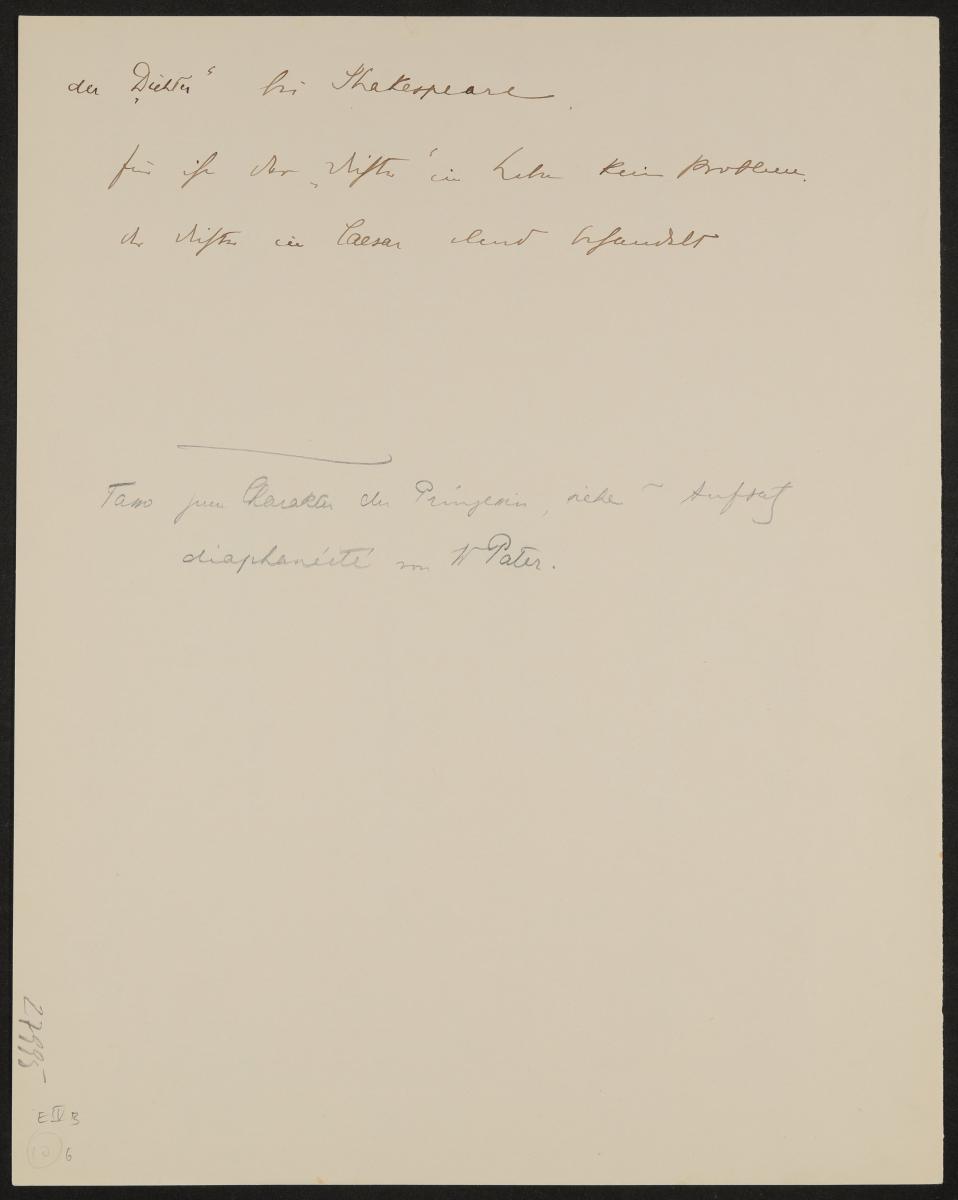 der „Dichter“ bei Shakespeare.
für ihn der „Dichter“ im Leben kein Problem.
der Dichter in Caesar elend behandelt
Tasso zum Charakter der Prinzessin, siehe Aufsatz
diaphanéité von W Pater.
27995
E IV B
10 6